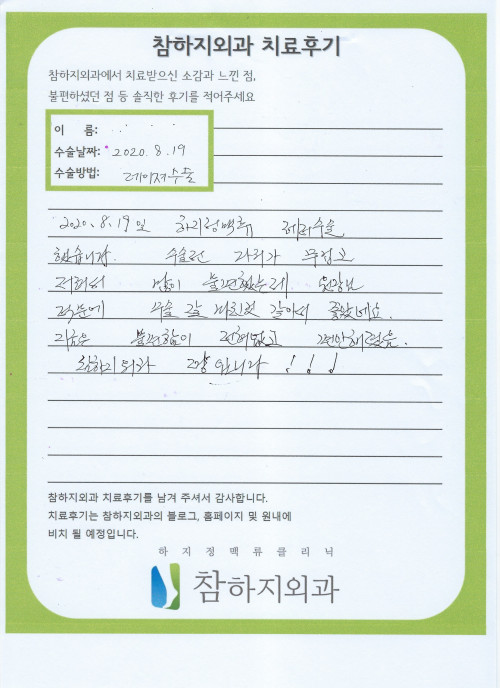 참하지외과 치료후기
참하지외과에서 치료받으신 소감과 느낀 점,
불편하셨던 점 등 솔직한 후기를 적어주세요
이 름:
수술날짜: 2020. 8. 19
수술방법: 레이저수술
2020. 8. 19일 하지정맥류 수술
했습니다. 수술전 다리가 무겁고
많이 불편했는데 원장님
덕분에 수술 잘 같아서 좋았네요.
지금은 불편함이 전혀없고 편안해졌음.
참하지외과 짱입니다 ! ! !
참하지외과 치료후기를 남겨 주셔서 감사합니다.
치료후기는 참하지외과의 블로그, 홈페이지 및 원내에
비치 될 예정입니다.
하지정맥류클리닉
참하지외과